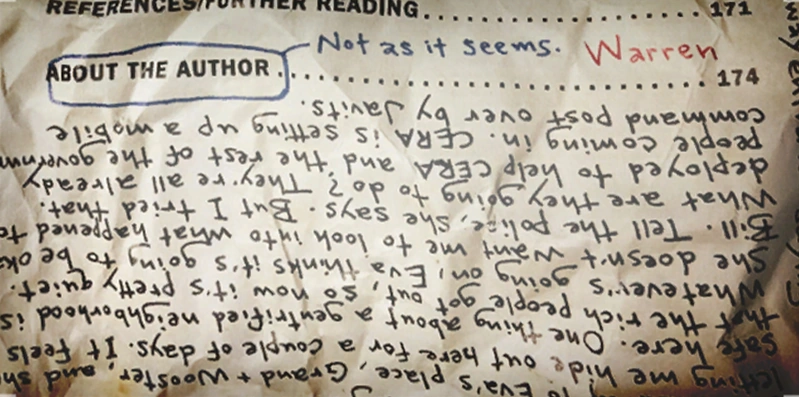 REFERENCES/FURTHER READING.......................... 171
Not as it seems. Warren
ABOUT THE AUTHOR.......................... 174
to Eva's place, Grand + Wooster, and she
letting me hide out here for a couple of days. It feels
safe here. One thing about a gentrified neighborhood is
that the rich people got out, so now it's pretty quiet.
Whatever's going on, Eva thinks it's going to be ok
She doesn't want me to look into what happened to
Bill. Tell the police, she says. But I tried that.
What are they going to do? They're all already
deployed to help CERA and the rest of the governm
people coming in. CERA is setting up a mobile
command post over by Javits.